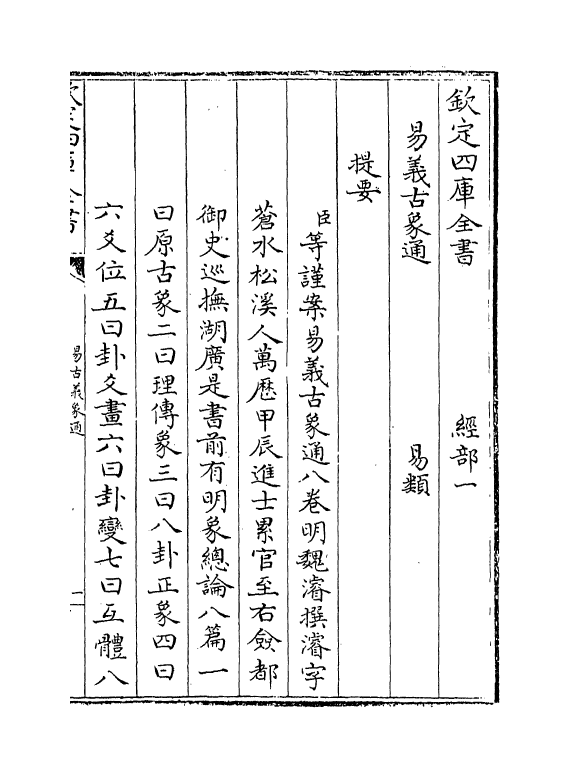 欽定四庫全書　經部一
易義古象通　易類
提要
臣等謹案易義古象通八卷明魏濬撰濬字
蒼水松溪人萬歷甲辰進士累官至右僉都
御史巡撫湖廣是書前有明象總論八篇一
曰原古象二曰理傳象三曰八卦正象四曰
六爻位五曰卦爻畫六曰卦變七曰互體八
欽定四庫全書
易古義象通
一